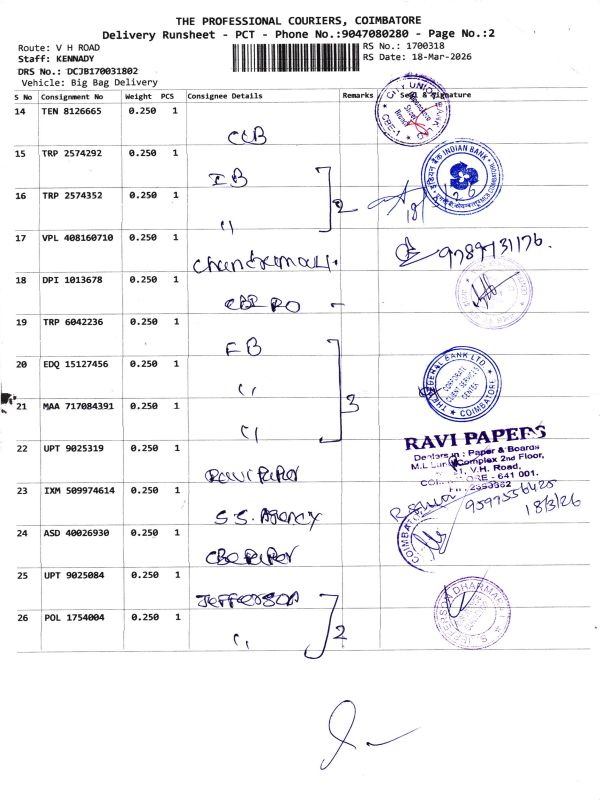 THE PROFESSIONAL COURIERS, COIMBATORE
Delivery Runsheet - PCT - Phone No.:9047080280 - Page No.:2
Route: V H ROAD
RS No.: 1700318
Staff: KENNADY
RS Date: 18-Mar-2026
DRS No.: DCJB170031802
Vehicle: Big Bag Delivery
S No Consignment No Weight PCS Consignee Details Remarks Seal & Signature
14 TEN 8126665 0.250 1
CUB
CITY UNION BANK
CBE-1
15 TRP 2574292 0.250 1
IB
INDIAN BANK
16 TRP 2574352 0.250 1
〃
2
18
126
17 VPL 408160710 0.250 1
9789731176.
18 DPI 1013678 0.250 1
19 TRP 6042236 0.250 1
FB
20 EDQ 15127456 0.250 1
〃
THE FEDERAL BANK LTD.
CORPORATE
CLIENT SERVICES
CENTER
COIMBATORE
21 MAA 717084391 0.250 1
〃
3
22 UPT 9025319 0.250 1
Ravi Paper
RAVI PAPERS
Dealers in : Paper & Boards
Complex 2nd Floor,
V.H. Road,
- 641 001.
23 IXM 509974614 0.250 1
S.S. Agency
9597556425
18/3/26
24 ASD 40026930 0.250 1
CBE Paper
COIMBAT
25 UPT 9025084 0.250 1
Jefferson
S. JEFFERSON DHARMARAJ
26 POL 1754004 0.250 1
〃
2